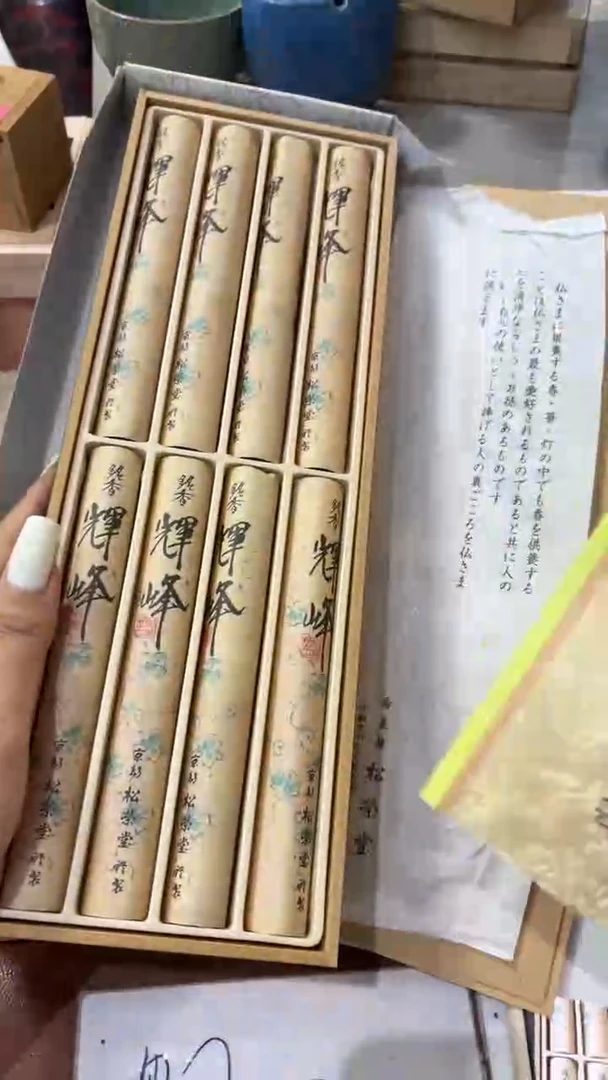 銘香
輝峰
京都 松栄堂 謹製
銘香
輝峰
京都 松栄堂 謹製
輝峰
京都 松栄堂 謹製
銘香
輝峰
京都 松栄堂 謹製
銘香
輝峰
京都 松栄堂 謹製
銘香
輝峰
京都 松栄堂 謹製
銘香
輝峰
京都 松栄堂 謹製
銘香
輝峰
京都 松栄堂 謹製
仏さまに供養する香・華・灯の中でも香を供養する
ことは仏さまの最も愛好されるものであると共に人の
心を清浄なさしめ お徳のあるものです
の使いとして捧げる人の真ごころを仏さま
に供えます
松栄堂